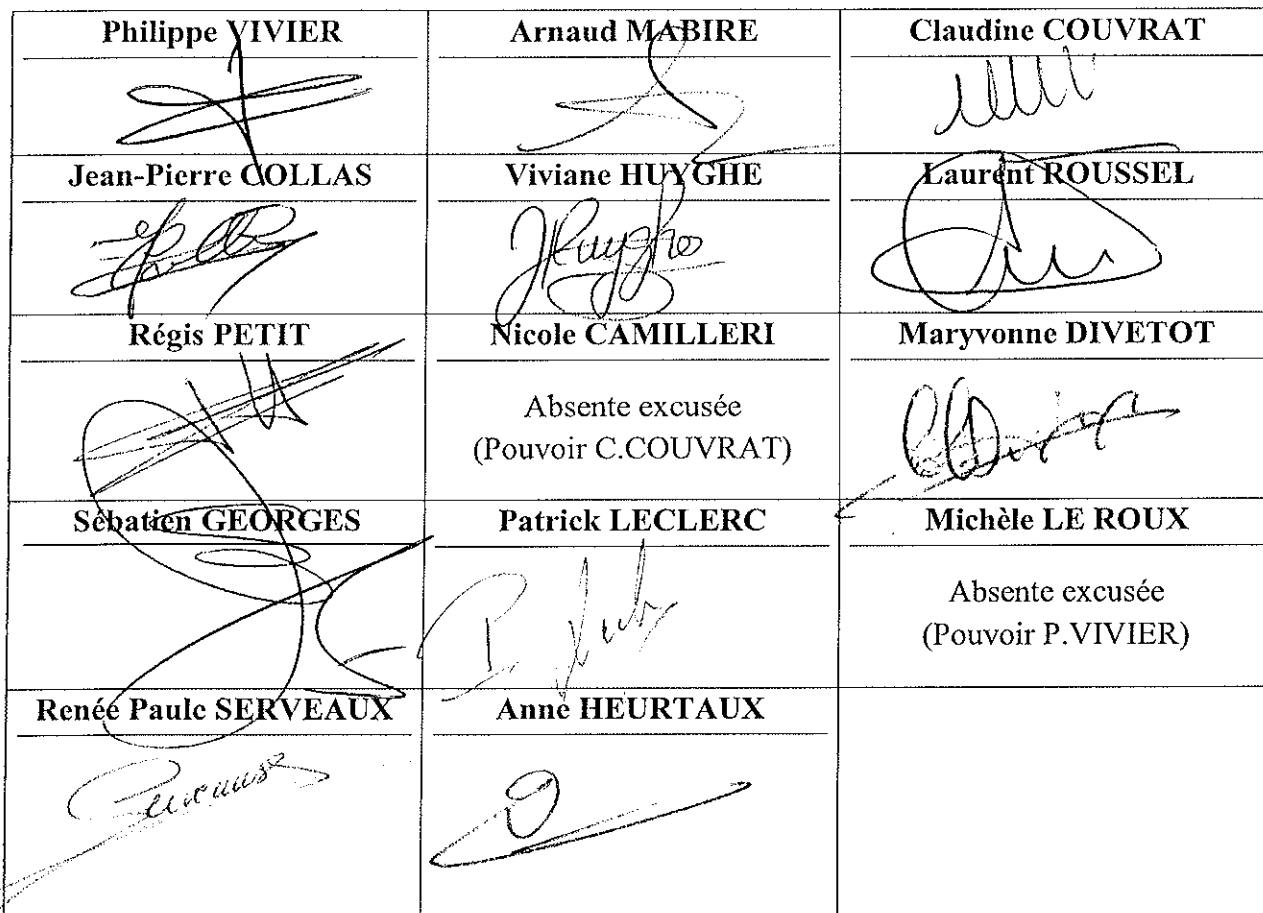 Philippe VIVIER
Arnaud MABIRE
Claudine COUVRAT
Jean-Pierre COLLAS
Viviane HUYGHE
Laurent ROUSSEL
Régis PETIT
Nicole CAMILLERI
Maryvonne DIVETOT
Absente excusée
(Pouvoir C.COUVRAT)
Sébatien GEORGES
Patrick LECLERC
Michèle LE ROUX
Absente excusée
(Pouvoir P.VIVIER)
Renée Paule SERVEAUX
Anne HEURTAUX